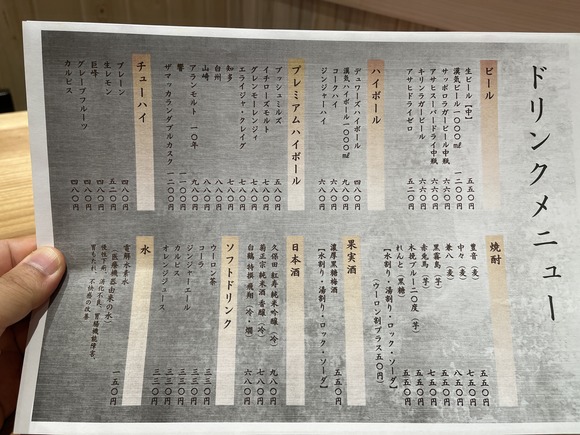 ドリンクメニュー
ビール
生ビール【中】 五五〇円
漢気ビール一〇〇〇㎖ 一二〇〇円
サッポロラガービール中瓶 六六〇円
アサヒスーパードライ中瓶 六六〇円
キリンラガービール 六六〇円
アサヒドライゼロ 五二〇円
ハイボール
デュワーズハイボール 四八〇円
漢気ハイボール一〇〇〇㎖ 九八〇円
コークハイ 六八〇円
ジンジャーハイ 六八〇円
プレミアムハイボール
ブッシュミルズ 五八〇円
イチローズモルト 七八〇円
グレンモーレンジィ 七八〇円
エライジャ・クレイグ 七八〇円
知多 七八〇円
白州 九八〇円
山崎 九八〇円
アランモルト 一〇年
響
ザマッカランダブルカスク 一二〇〇円
チューハイ
プレーン 四八〇円
生レモン 五二〇円
巨峰 四八〇円
グレープフルーツ 四八〇円
カルピス 四八〇円
焼酎
豊音(麦) 五五〇円
中々(麦) 五五〇円
兼八(麦) 八五〇円
黒霧島(芋) 五五〇円
赤兎馬(芋) 七五〇円
木挽ブルー二〇度(芋) 五五〇円
れんと(黒糖) 五五〇円
【水割り・湯割り・ロック・ソーダ】
(ウーロン割プラス五〇円)
果実酒
濃厚黒糖梅酒 五五〇円
【水割り・湯割り・ロック・ソーダ】
日本酒
久保田 紅寿 純米吟醸(冷) 九八〇円
菊正宗 純米酒 香醸(冷) 七八〇円
白鶴 特撰 飛翔(冷・燗) 六八〇円
ソフトドリンク
ウーロン茶 三三〇円
コーラ 三三〇円
ジンジャーエール 三三〇円
カルピス 三三〇円
オレンジジュース 三三〇円
水
電解水素水 一五〇円
(医療機器由来の水)
慢性下痢、消化不良、胃腸機能障害、
胃もたれ、不快感の改善